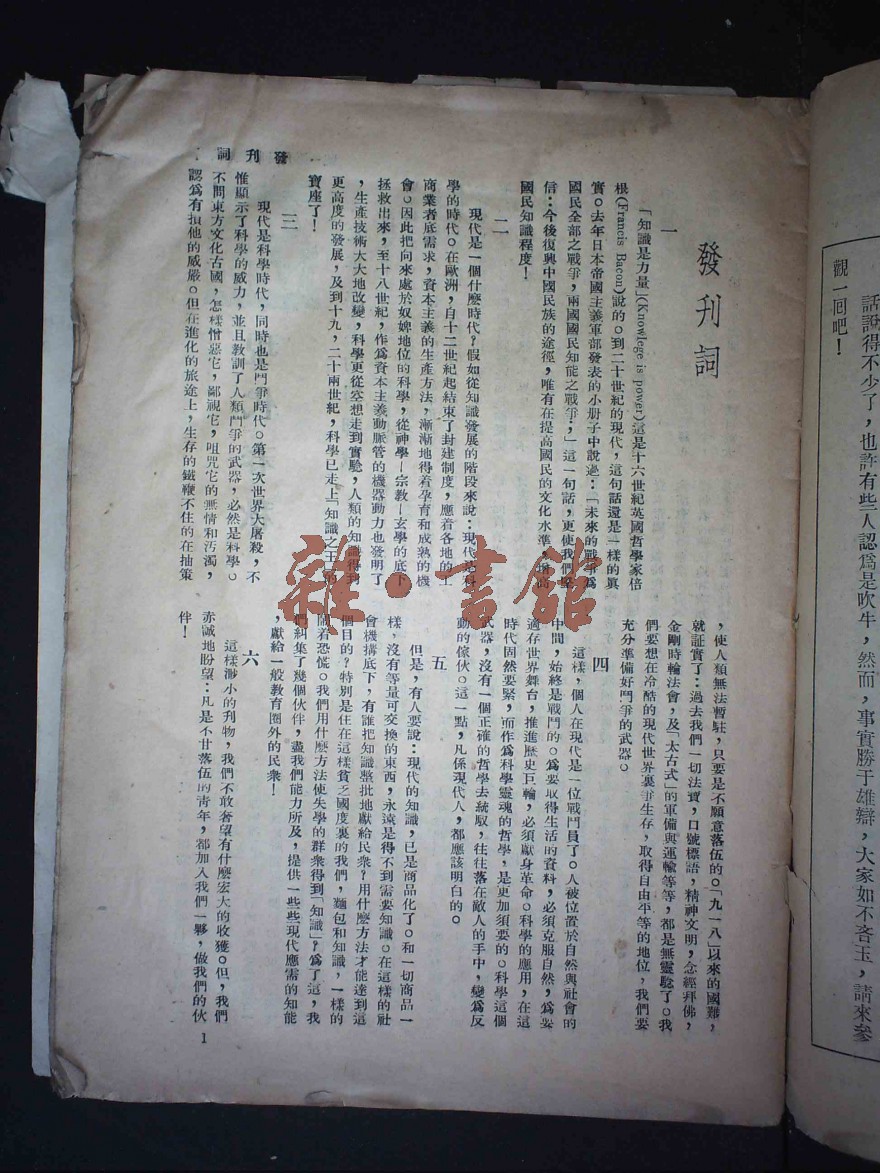 話說得不少了，也許有些人認爲是吹牛，然而，事實勝于雄辯，大家如不吝玉，請來參
觀一回吧！
發刊詞
一
「知識是力量」(Knowlege is power)這是十六世紀英國哲學家倍
根(Francis Bacon)說的。到二十世紀的現代，這句話還是一樣的眞
實。去年日本帝國主義軍部發表的小册子中說過：「未來的戰爭爲
國民全部之戰爭，兩國國民知能之戰爭；」這一句話，更使我們堅
信：今後復興中國民族的途徑，唯有在提高國民的文化水準，增高
國民知識程度！
二
現代是一個什麼時代？假如從知識發展的階段來說：現代是科
學的時代。在歐洲，自十二世紀起結束了封建制度，應着各地的工
商業者底需求，資本主義的生產方法，漸漸地得着孕育和成熟的機
會。因此把向來處於奴婢地位的科學，從神學—宗敎—玄學的底下
拯救出來，至十八世紀，作爲資本主義動脈管的機器動力也發明了
，生產技術大大地改變，科學更從空想走到實驗，人類的知識得到
更高度的發展，及到十九，二十兩世紀，科學已走上「知識之王」的
寶座了！
三
現代是科學時代，同時也是鬥爭時代。第一次世界大屠殺，不
惟顯示了科學的威力，並且敎訓了人類鬥爭的武器，必然是科學。
不問東方文化古國，怎樣憎惡它，鄙視它，咀咒它的無情和汚濁，
認爲有損他的威嚴。但在進化的旅途上，生存的鐵鞭不住的在抽策
，使人類無法暫駐，只要是不願意落伍的。「九一八」以來的國難，
就証實了：過去我們一切法寶，口號標語，精神文明，念經拜佛，
金剛時輪法會，及「太古式」的軍備與運輸等等，都是無靈騐了。我
們要想在冷酷的現代世界裏爭生存，取得自由平等的地位，我們要
充分準備好鬥爭的武器。
四
這樣，個人在現代是一位戰鬥員了。人被位置於自然與社會的
中間，始終是戰鬥的。爲要取得生活的資料，必須克服自然，爲要
適存世界舞台，推進歷史巨輪，必須獻身革命。科學的應用，在這
時代固然要緊，而作爲科學靈魂的哲學，是更加須要的。科學這個
武器，沒有一個正確的哲學去統馭，往往落在敵人的手中，變爲反
動的傢伙。這一點，凡係現代人，都應該明白的。
五
但是，有人要說：現代的知識，已是商品化了。和一切商品一
樣，沒有等量可交換的東西，永遠是得不到需要知識。在這樣的社
會機構底下，有誰把知識整批地獻給民衆？用什麼方法才能達到這
個目的？特別是住在這樣貧乏國度裏的我們，麵包和知識，一樣的
鬧着恐慌。我們用什麼方法使失學的群衆得到「知識」？爲了這，我
們糾集了幾個伙伴，盡我們能力所及，提供一些些現代應需的知能
，獻給一般敎育圈外的民衆！
六
這樣渺小的刋物，我們不敢奢望有什麼宏大的收獲。但，我們
赤誠地盼望：凡是不甘落伍的靑年，都加入我們一夥，做我們的伙
伴！
發刊詞
1
雜·書館